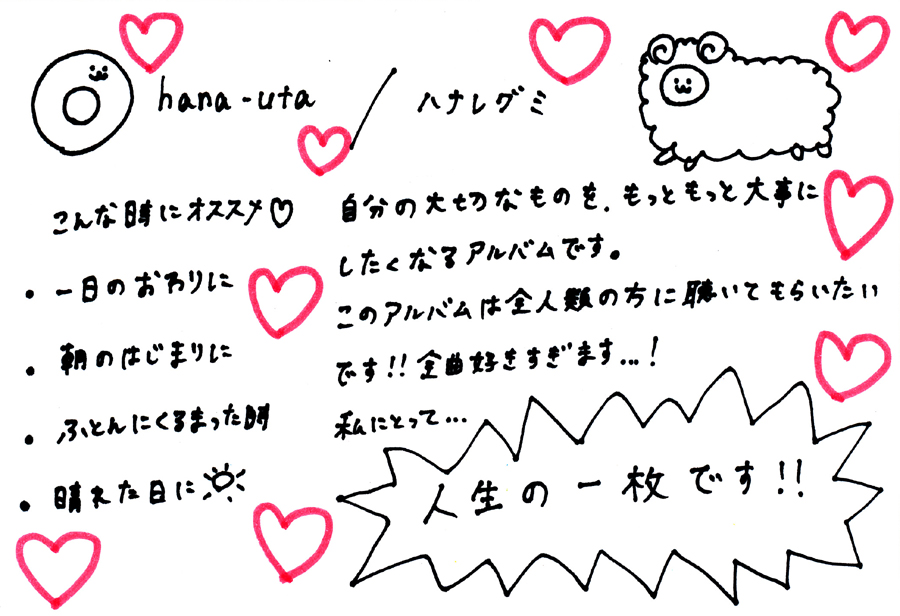 hana-uta / ハナレグミ
こんな時にオススメ♡
・一日のおわりに
・朝のはじまりに
・ふとんにくるまった時
・晴れた日に
自分の大切なものを、もっともっと大事に
したくなるアルバムです。
このアルバムは全人類の方に聴いてもらいたい
です!!全曲好きすぎます...!
私にとって...
人生の一枚です!!